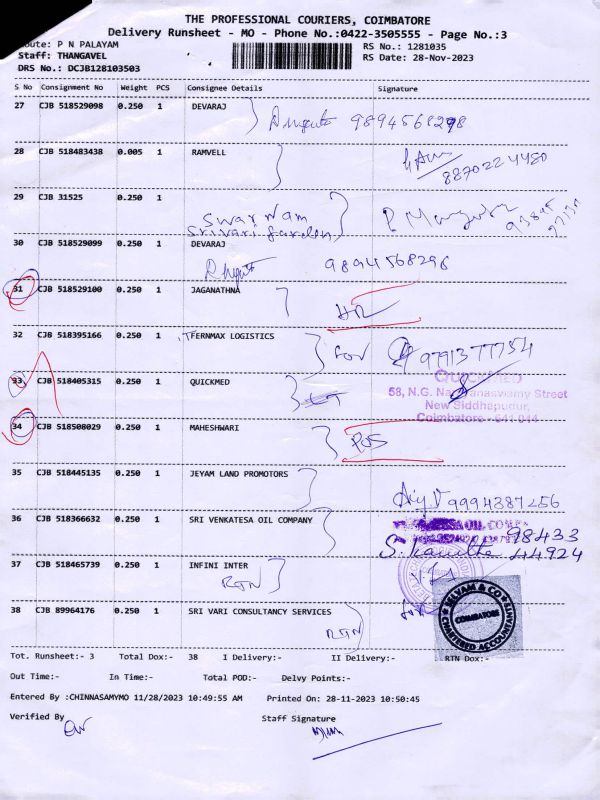 THE PROFESSIONAL COURIERS, COIMBATORE
Delivery Runsheet - MO - Phone No.:0422-3505555 - Page No.:3
oute: P N PALAYAM RS No.: 1281035
Staff: THANGAVEL RS Date: 28-Nov-2023
DRS No.: DCJB128103503
S No Consignment No Weight PCS Consignee Details Signature
27 CJB 518529098 0.250 1 DEVARAJ
9894568298
28 CJB 518483438 0.005 1 RAMVELL
8870224480
29 CJB 31525 0.250 1
Swarnam
Srivari Garden
30 CJB 518529099 0.250 1 DEVARAJ
9894568298
31 CJB 518529100 0.250 1 JAGANATHNA
32 CJB 518395166 0.250 1 TFERNMAX LOGISTICS
For 9791377754
33 CJB 518405315 0.250 1 QUICKMED
QUICKMED
58, N.G. Narayanaswamy Street
New Siddhapudur,
Coimbatore - 641 044
34 CJB 518508029 0.250 1 MAHESHWARI
35 CJB 518445135 0.250 1 JEYAM LAND PROMOTORS
9994387256
36 CJB 518366632 0.250 1 SRI VENKATESA OIL COMPANY
98433
S. Kavitha 44924
37 CJB 518465739 0.250 1 INFINI INTER
RTN
38 CJB 89964176 0.250 1 SRI VARI CONSULTANCY SERVICES
RTN
SELVAM & CO
COIMBATORE
CHARTERED ACCOUNTANTS
Tot. Runsheet:- 3 Total Dox:- 38 I Delivery:- II Delivery:- RTN Dox:-
Out Time:- In Time:- Total POD:- Delvy Points:-
Entered By :CHINNASAMYMO 11/28/2023 10:49:55 AM Printed On: 28-11-2023 10:50:45
Verified By Staff Signature